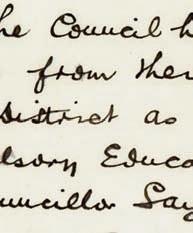 he Council h
from ther
District as
lsory Educa
uncillor Say